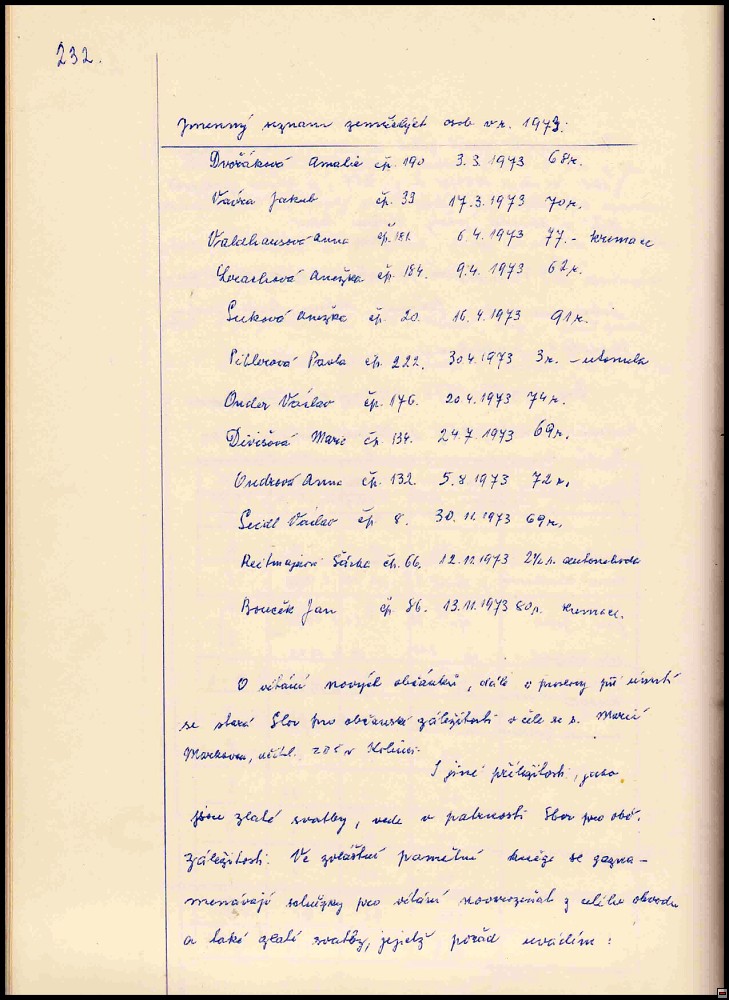 232.
Jmenný seznam zemřelých osob v r. 1973:
Dvořáková Amalie čp. 190 3.3.1973 68r.
Vávra Jakub čp. 33 17.3.1973 70r.
Valdhansová Anna čp. 181. 6.4.1973 77.- kremace
Anežka čp. 184. 9.4.1973 62r.
Suková Anežka čp. 20 16.4.1973 91r.
Pavla čp. 222. 30.4.1973 3r. - utonula
Onder Václav čp. 176. 20.4.1973 74r.
Divišová Marie čp. 134. 24.7.1973 69r.
Ondrová Anna čp. 132. 5.8.1973 72r.
Seidl Václav čp. 8. 30.11.1973 69r.
Šárka čp. 66. 12.11.1973 autonehoda
Bouček Jan čp. 86. 13.11.1973 80r. kremace.
O vítání nových občánků, dále o proslovy při úmrtí
se stará Sbor pro občanské záležitosti v čele se s. Marií
učitel. ZDŠ v
I jiné příležitosti, jako
jsou zlaté svatby, vede v patrnosti Sbor pro obč.
záležitosti. Ve zvláštní pamětní knize se zazna-
menávají schůzky pro vítání novorozeňat z celého obvodu
a také zlaté svatby, jejichž pořad uvádím: